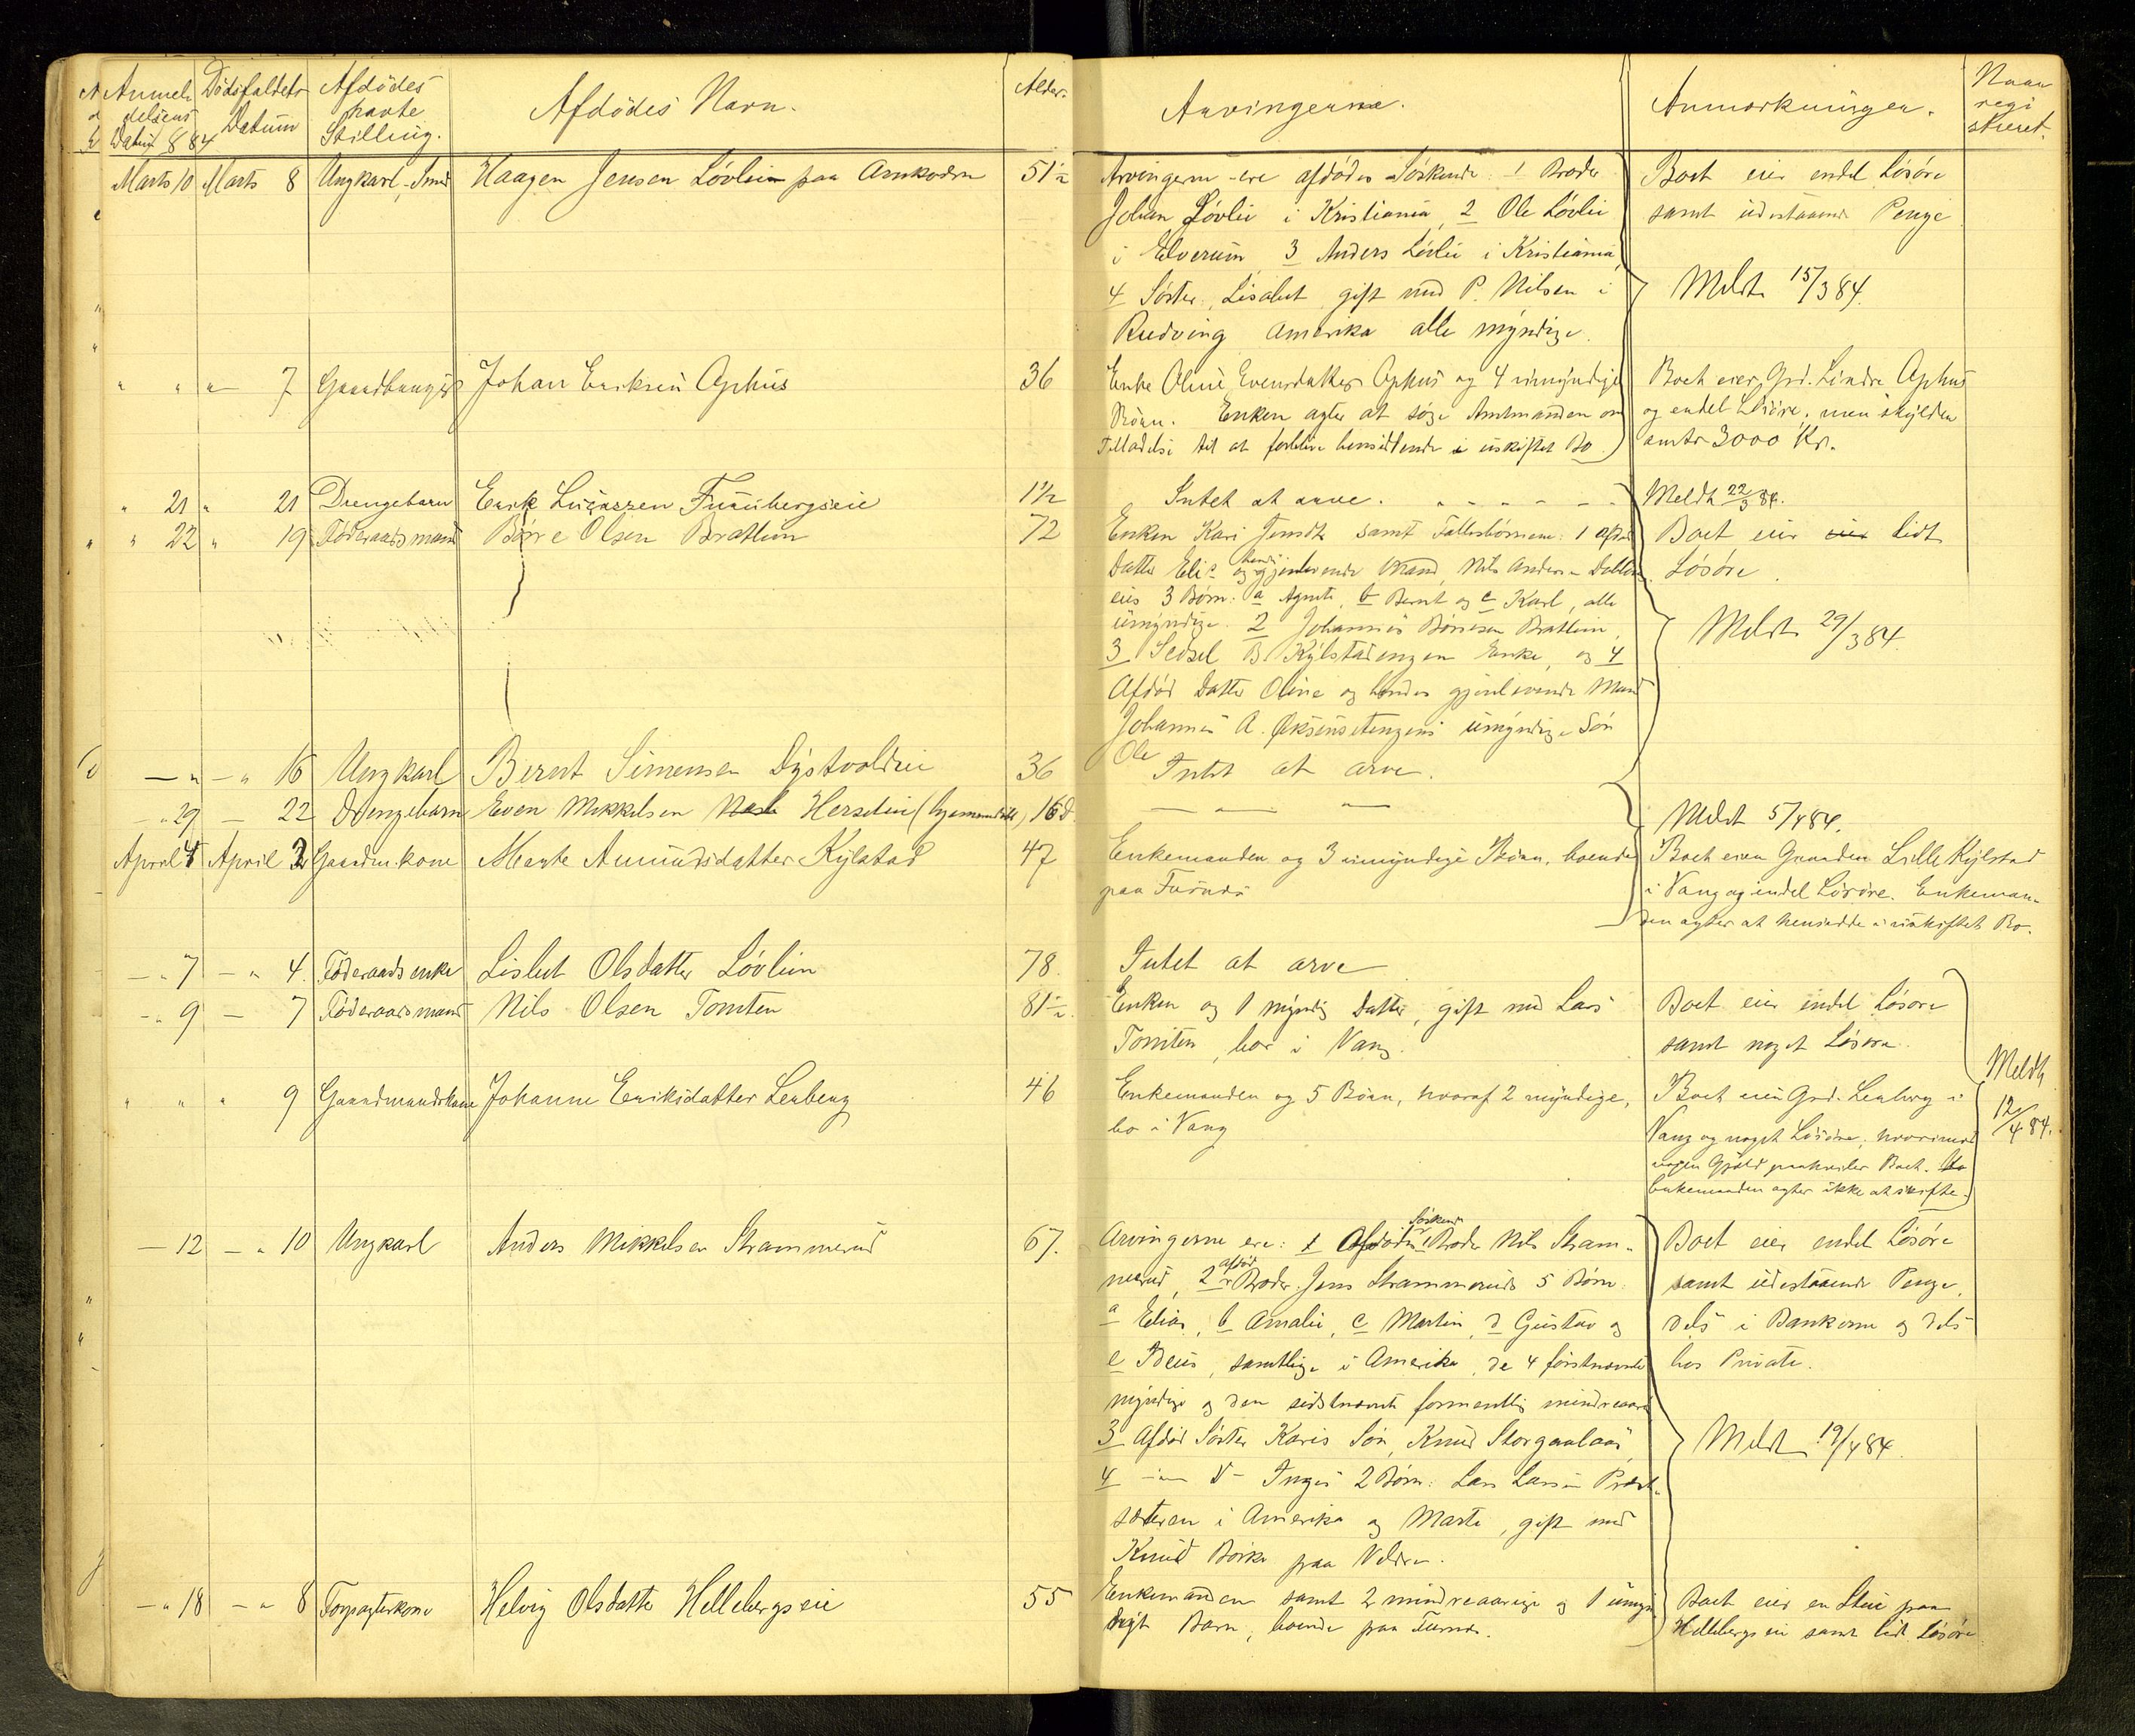 Anmeldelsens Datum 1884 Dödsfaldets Datum Afdödes havte Stilling. Afdödes Navn. Alder. Arvingerne. Anmærkninger. Naar registreret.
Marts 10 Marts 8 Ungkarl, Haagen Jensen Lövlien paa 51 Arvingerne ere afdödes Söskende: 1 Broder Boet eier endel Lösöre
Johan Lövlie i Kristiania, 2 Ole Lövlie samt udestaaende Penge
i Elverum 3 Anders Lövlie i Kristiania
4 Söster Lisabet gift med P. Nilsen i Meldt 15/3 84.
Redving Amerika alle myndige.
" " " 7 Johan Eriksen Aphus 36 Enke Oline Evensdatter Aphus og 4 umyndige Boet eier Grd. Söndre Aphus
Börn. Enken agter at söge Amtmanden om og endel Lösöre, men skylder
Tilladelse til at forblive hensiddende i uskiftet Bo. 3000 Kr.
" 21 " 21 Drengebarn Erik Furubergseie 1½ Intet at arve. Meldt 22/3 84.
" 22 " 19 Föderaadsmand Börre Olsen Bratlien 72 Enken Kari Jensdtr samt Fællesbörnene: 1 afdöd Boet eier lidt
Datter Elis og hendes gjenlevende Mand Nils Andersen Lösöre.
eies 3 Börn: a Agnete, b Bernt og c Karl, alle
umyndige. 2 Johannes Börresen Bratlien, Meldt 29/3 84.
3 Sedsel B. Kylstadengen Enke, og 4
Afdöd Datter Oline og hendes gjenlevende Mand
Johannes A. umyndige Sön
Ole
— " — " 16 Ungkarl Bernt Simensen Dystvoldeie 36 Intet at arve.
— " 29 — 22 Drengebarn Even Mikkelsen Herselien 16 d — " — " —
Meldt 5/4 84.
April 4 April 2 Gaardm.kone Marte Amundsdatter Kylstad 47 Enkemanden og 3 umyndige Börn, boende Boet eier Gaarden Lille Kylstad
paa Furnes i Vang og endel Lösöre. Enkeman-
den agter at hensidde i uskiftet Bo.
— " 7 — " 4. Föderaadsenke Lisbet Olsdatter Lövlien 78. Intet at arve
— " 9 — 7 Föderaadsmand Nils Olsen Tomten 81 Enken og 1 myndig Datter, gift med Lars Boet eier endel Lösöre
Tomten, bor i Vang. samt noget Lösöre.
Meldt
12/4 84.
" " " 9 Gaardmandskone Johanne Eriksdatter Lenberg 46 Enkemanden og 5 Börn, hvoraf 2 myndige, Boet eier Grd. Lenberg i
bo i Vang Vang og noget Lösöre, hvorimod
nogen Gjæld paahviler Boet.
Enkemanden agter ikke at skifte.
— 12 — " 10 Ungkarl Anders Mikkelsen Strammerud 67. Arvingerne ere: 1 Afdödes Broder Nils Stram- Boet eier endel Lösöre
merud, 2 afdöd Broder Jens Strammeruds 5 Börn samt udestaaende Penge,
a Elias, b Amalie, c Martin, d Gustav og dels i Bankerne og dels
e samtlige i Amerika, de 4 förstnævnte hos Private.
myndige og den sidstnævnte formentlig mindreaarig
3 Afdöd Söster Karis Sön, Knud Meldt 19/4 84.
4 — " — Inges 2 Börn: Lars Larsen Præst-
sæteren i Amerika og Marte, gift med
Knud Börke paa Veldre.
— " 18 — " 8 Helvig Olsdatter Hellebergseie 55 Enkemanden samt 2 mindreaarige og 1 umyn- Boet eier en Stue paa
digt Barn, boende paa Furnes. Hellebergseie samt lidt Lösöre